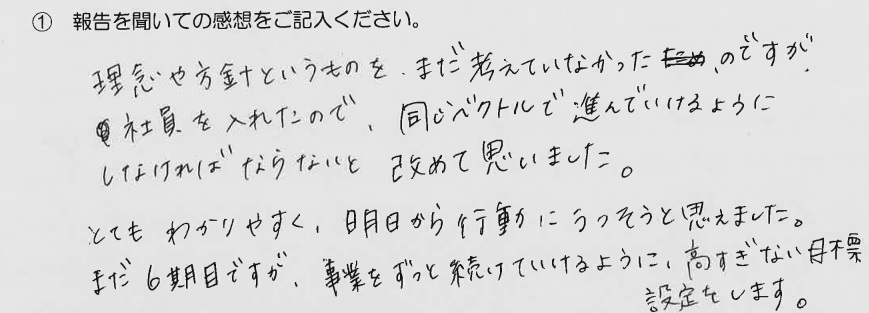 ① 報告を聞いての感想をご記入ください。
理念や方針というものを、まだ考えていなかった、のですが、
社員を入れたので、同じベクトルで進んでいけるように
しなければならないと改めて思いました。
とてもわかりやすく、明日から行動にうつそうと思えました。
まだ6期目ですが、事業をずっと続けていけるように、高すぎない目標
設定をします。